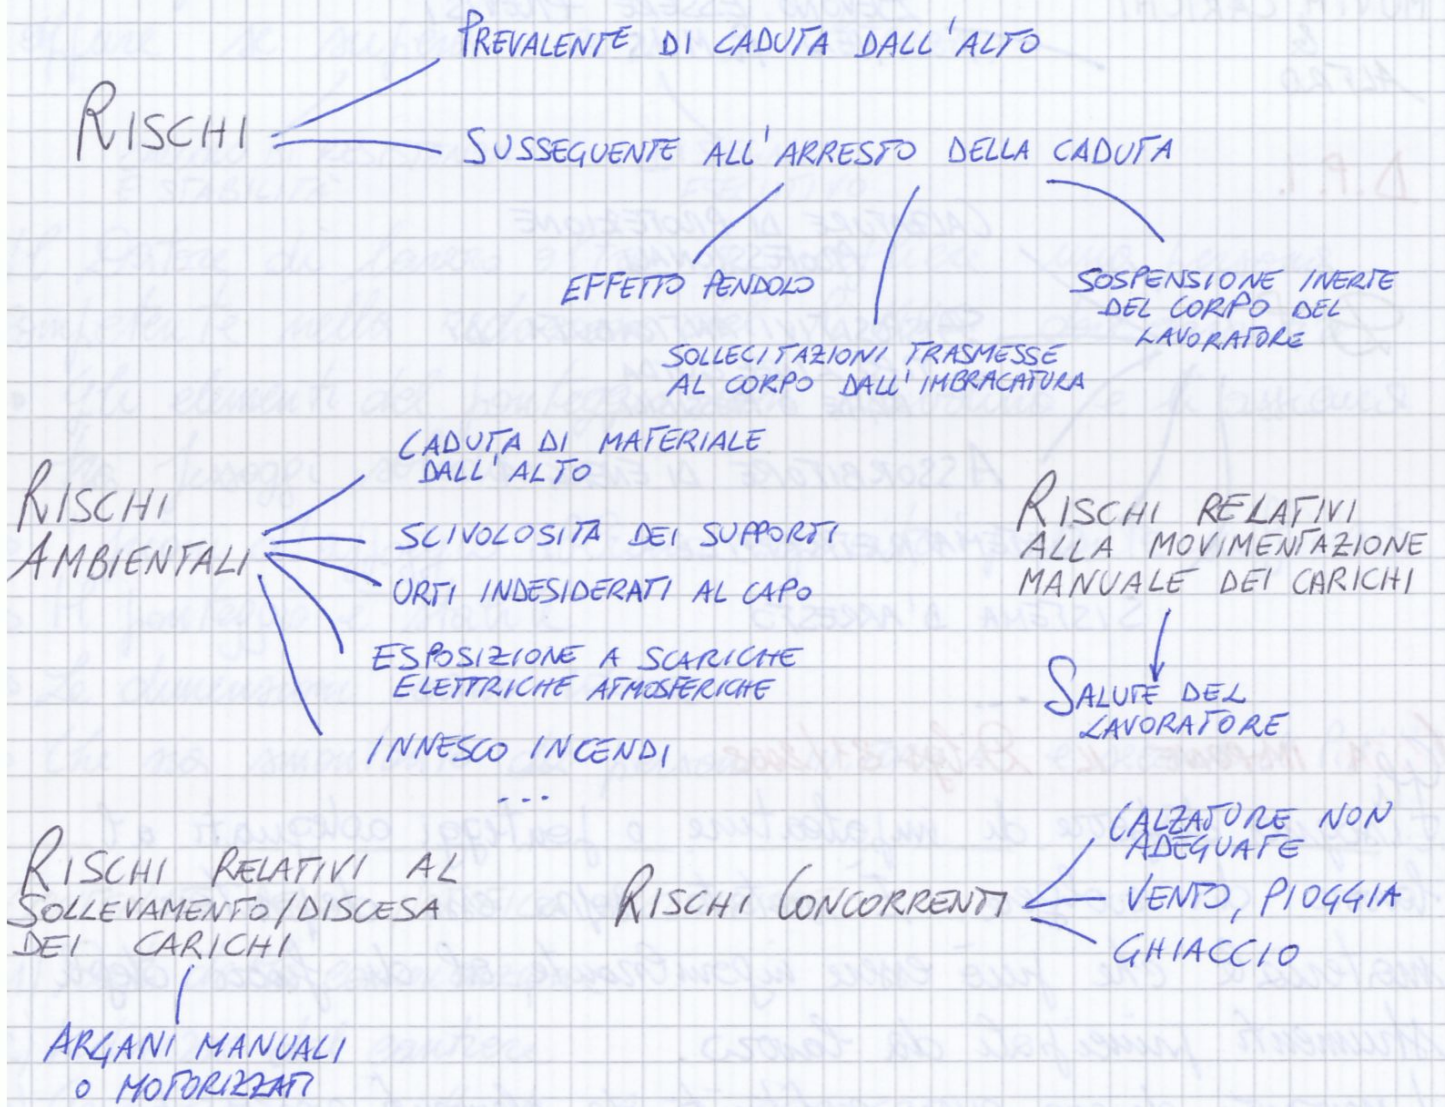 PREVALENTE DI CADUTA DALL'ALTO
RISCHI
SUSSEGUENTE ALL'ARRESTO DELLA CADUTA
EFFETTO PENDOLO
SOLLECITAZIONI TRASMESSE
AL CORPO DALL'IMBRACATURA
SOSPENSIONE INERTE
DEL CORPO DEL
LAVORATORE
RISCHI
AMBIENTALI
CADUTA DI MATERIALE
DALL'ALTO
SCIVOLOSITÀ DEI SUPPORTI
URTI INDESIDERATI AL CAPO
ESPOSIZIONE A SCARICHE
ELETTRICHE ATMOSFERICHE
INNESCO INCENDI
...
RISCHI RELATIVI
ALLA MOVIMENTAZIONE
MANUALE DEI CARICHI
SALUTE DEL
LAVORATORE
RISCHI RELATIVI AL
SOLLEVAMENTO/DISCESA
DEI CARICHI
ARGANI MANUALI
O MOTORIZZATI
RISCHI CONCORRENTI
CALZATURE NON
ADEGUATE
VENTO, PIOGGIA
GHIACCIO